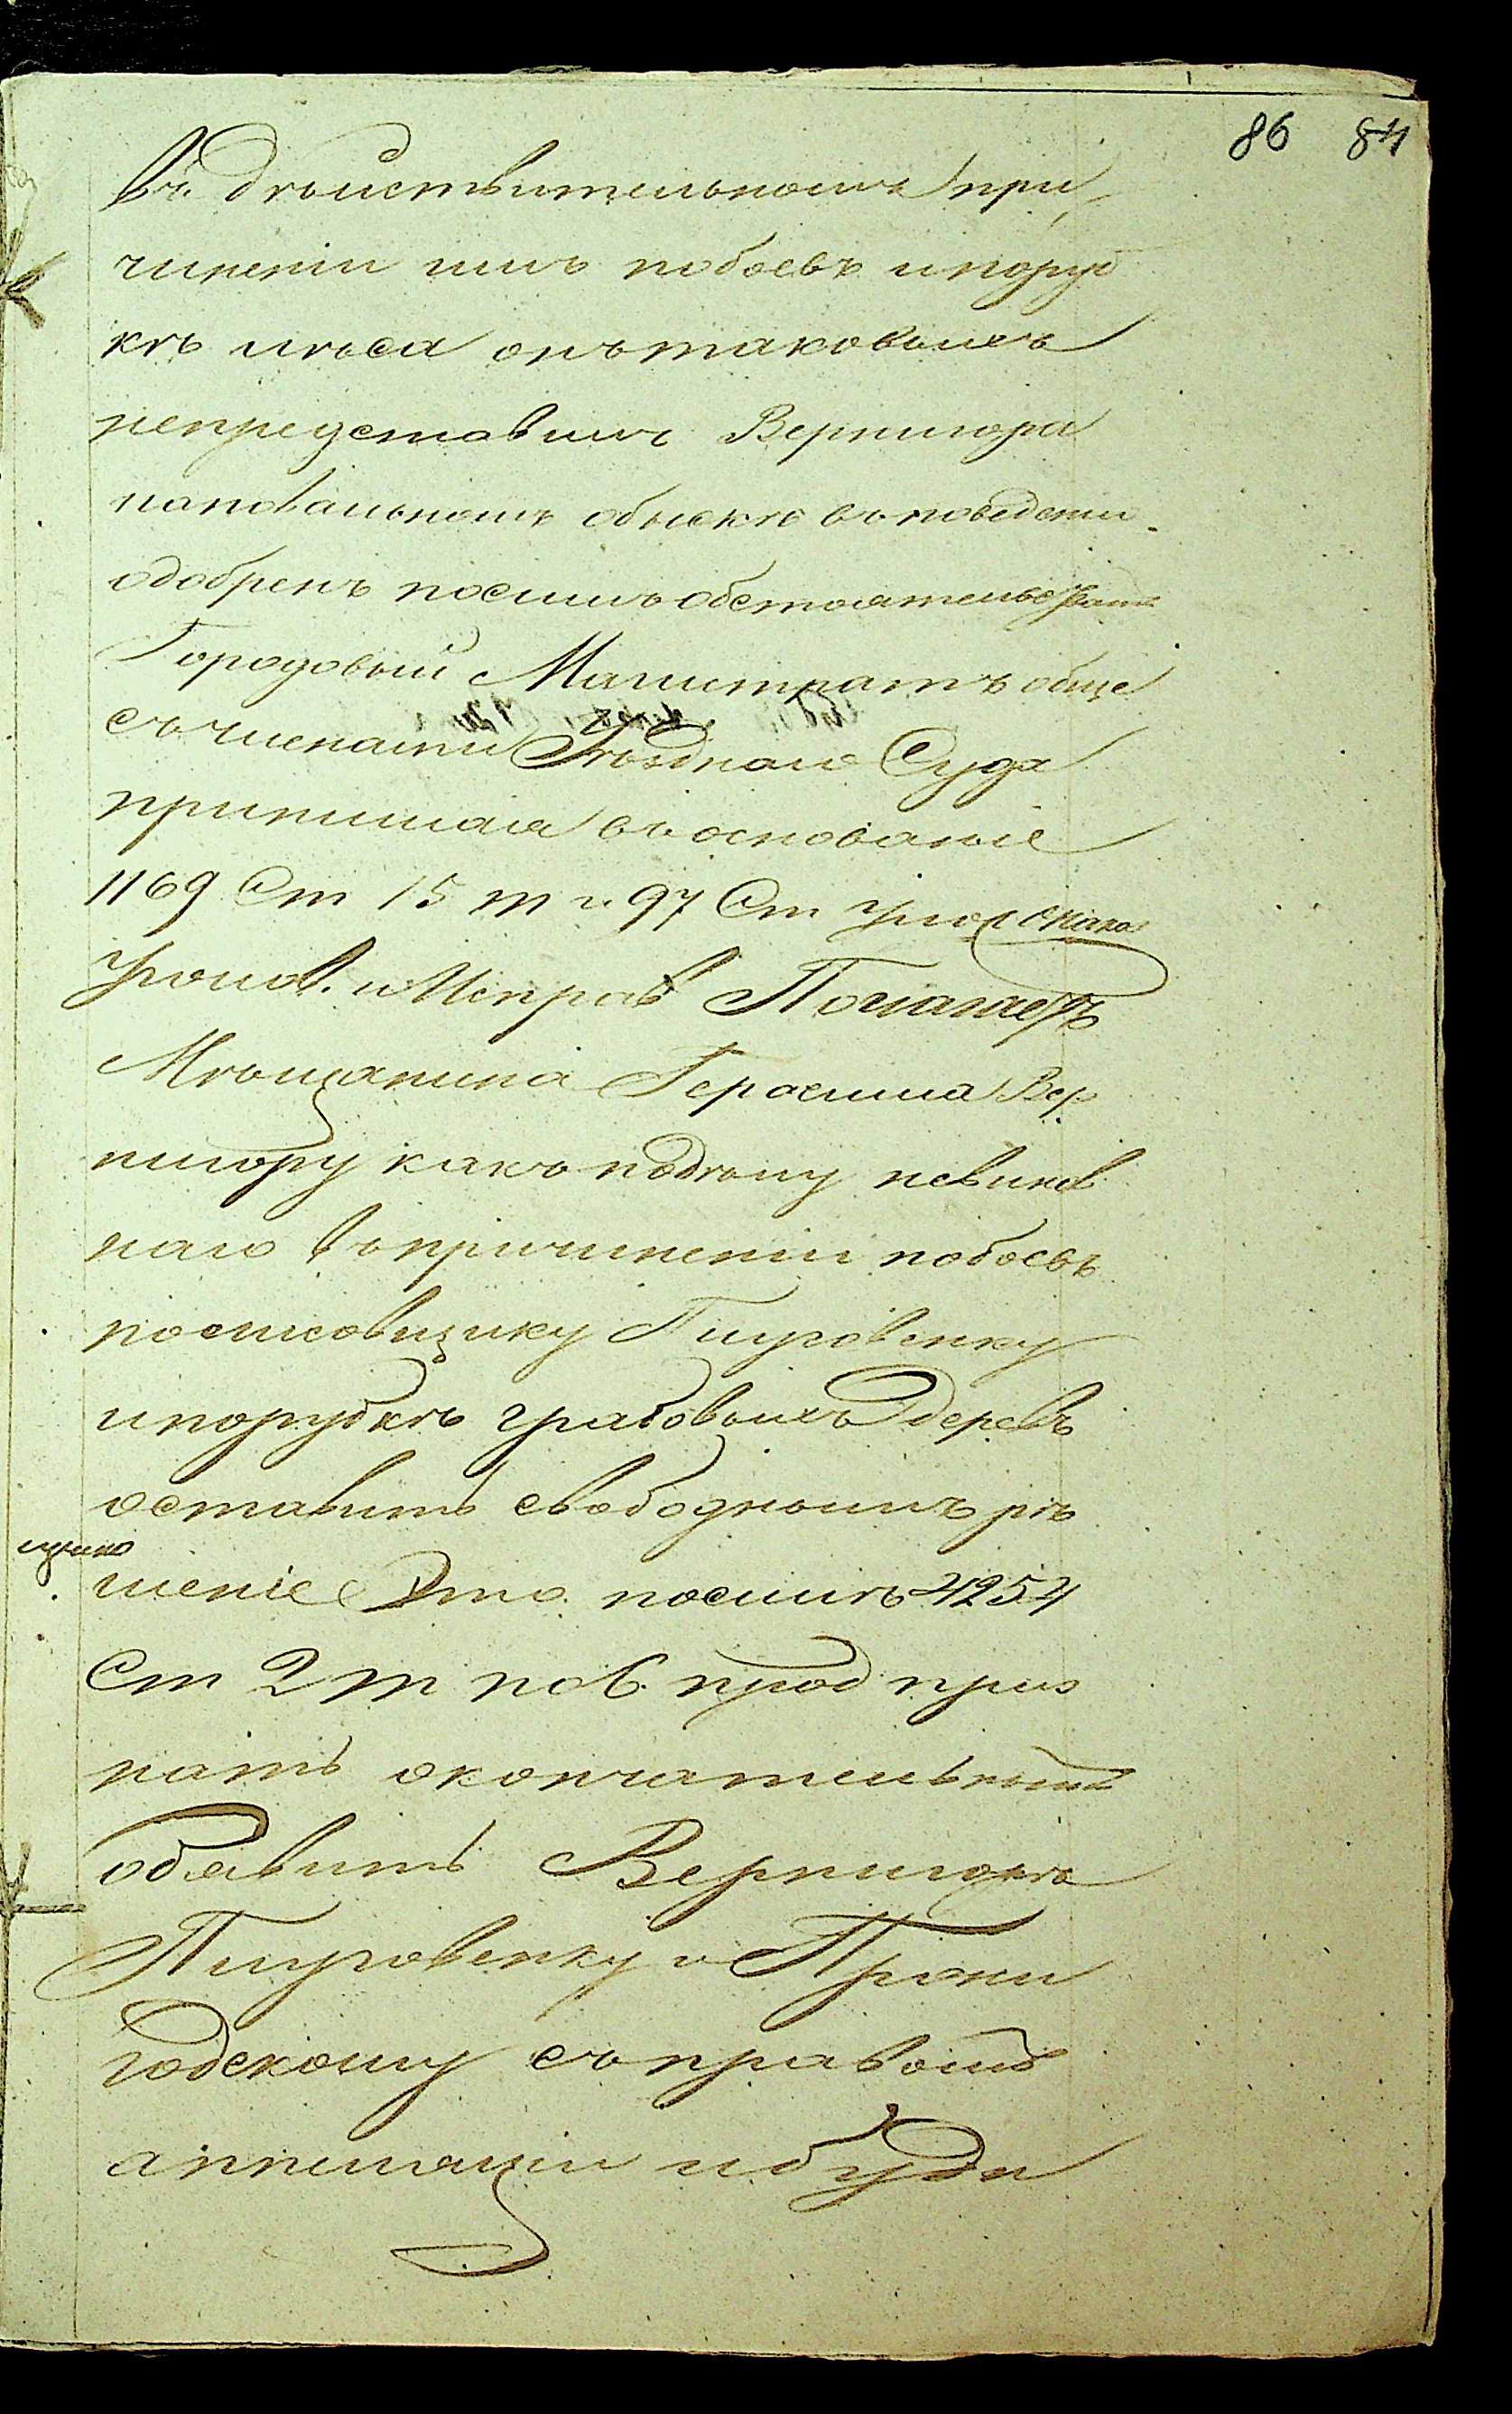 86 84
въ дѣйствительномъ при
чиненіи имъ побоевъ и поруб
кѣ лѣса онъ таковыхъ
непредставилъ Вернигора
поповальномъ обыскѣ въ поведеніи
одобренъ посимъ обстоятельствамъ
Городовый Магистратъ обще
съ членами Уѣзднаго Суда
принимая въ основаніе
1169 Ст 15 т и 97 Ст Улож о наказ
Уголов. и Исправ Полагаетъ
Мѣщанина Герасима Вер
нигору какъ по дѣлу невинов
наго въ причиненіи побоевъ
полисовщику Пигровенку
и порубкѣ грабовыхъ деревъ
оставить свободнымъ рѣ
шеніе Это посилѣ 4254
Ст 2 т по 6 прод приз
нать окончательнымъ
обявить Вернигорѣ
Пигровенку и
годскому съ правомъ
аппеляціи и буде